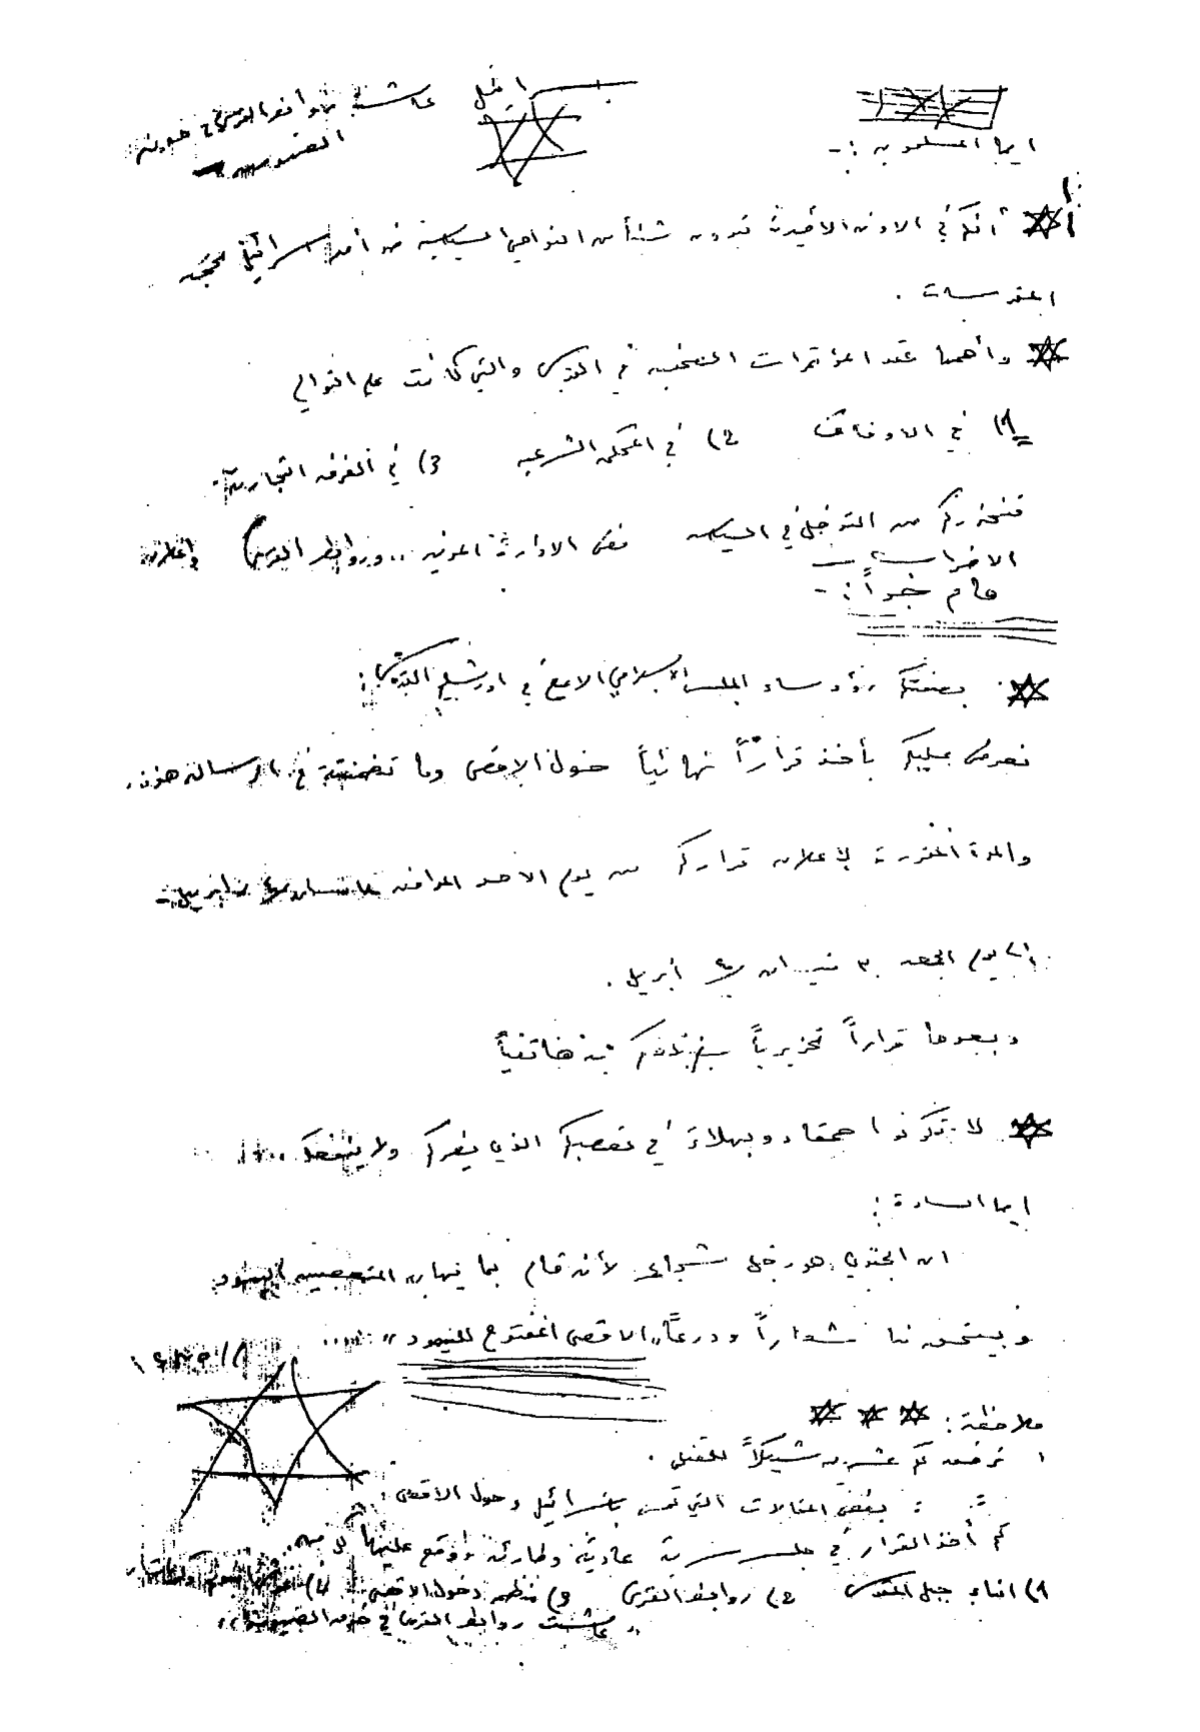 إسرائيل عاشت روابط القرى في خدمة
الصهيونية
أيها المسلمون :-
أنكم في الاونه الأخيرة تبدون شيئاً من النواحي السياسية ضد أمن إسرائيل بحجة
المقدسات .
وأهمها عقد المؤتمرات الصحفيه في القدس والتي كانت على التوالي
1) في الاوقاف 2) في المحكمه الشرعيه 3) في الغرفه التجاريه .
فنحذركم من التدخل في السياسه ضد الادارة المدنيه .. وروابط القرى) واعلان
الاضراب
هام جداً :-
بصفتكم رؤوساء المجلس الإسلامي الاعلى في اورشليم القدس :
نعرض عليكم بأخذ قراراً نهائياً حول الاقصى وما تضمنته في الرسالة هذه .
والمدة المقررة لإعلان قراركم من يوم الاحد الموافق أبريل -
الى يوم الجمعه ٣٠ نيسان أبريل .
وبعدها قراراً تحذيرياً هاتفياً
لا تكونوا حمقاء وبهلاء في تعصبكم الذي يضركم ولا ينفعكم ....
ايها السادة :
ان الجندي هو رجل شجاع لأنه قام بما المتعصبين اليهود
ويستحق منا شعاراً ودرعاً ,, الاقصى مفتوح لليهود ,, ....
ملاحظة :
١ ندفع لكم عشرين شيكلاً للقتيل .
: بعض المقالات التي تمس بإسرائيل وحول الاقصى .
تم أخذ القرار في جلسه سرية عادية وطارئه ووقع عليها كل من
1) امناء جبل المقدس 2) روابط القرى 3) منظمه دخول الاقصى 4)
,, عاشت روابط القرى في خدمه الصهيونية ,,